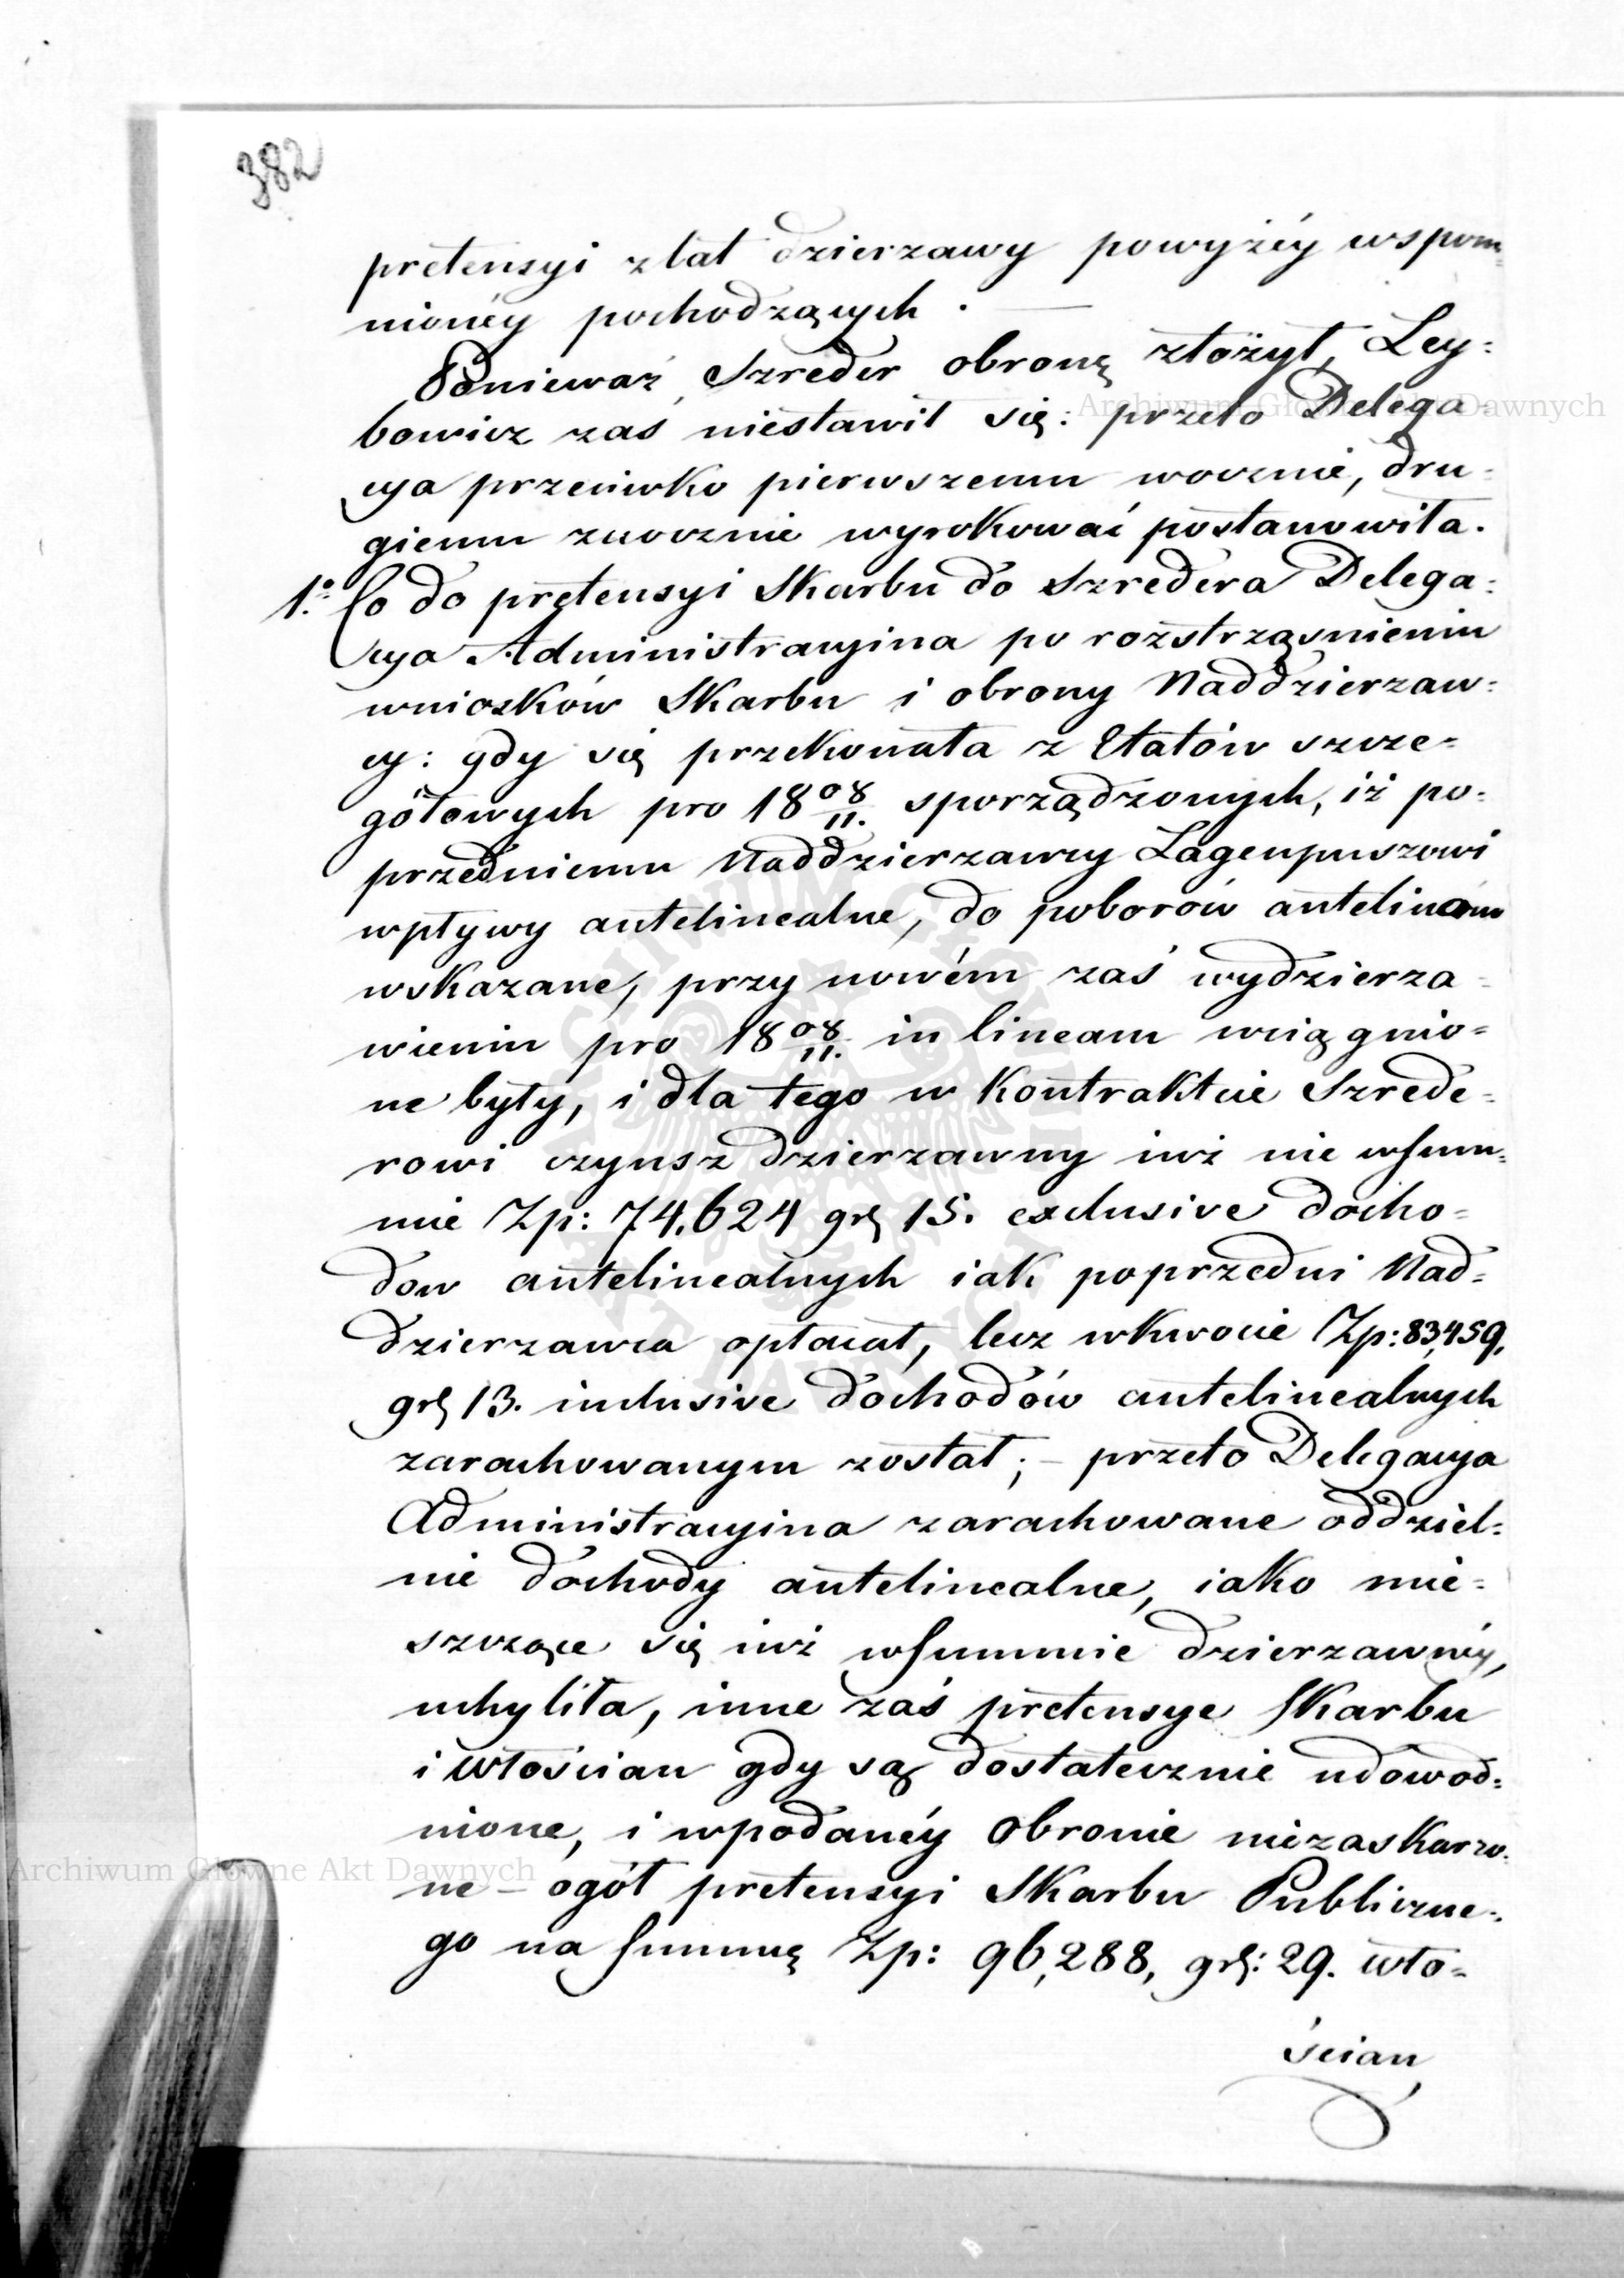 382
pretensyi z lat dzierzawy powyżéy wspom=
nionéy pochodzących. —
Ponieważ Szreder obronę złożył, Ley=
bowicz zaś niestawił się: przeto Delega=
cya przeciwko pierwszemu wocznie, dru=
giemu zaocznie wyrokować postanowiła.
1.o Co do pretensyi Skarbu do Szredera Delega=
cya Administracyina po rozstrząsnieniu
wniosków Skarbu i obrony Naddzierzaw=
cy: gdy się przekonała z Etatów szcze=
gółowych pro 18 08/11. sporządzonych, iż po=
przedniemu Naddzierzawcy Lagenpuszowi
wpływy antelinealne, do poborów antelineam
wskazane, przy nowém zaś wydzierza=
wieniu pro 18 08/11. in lineam wciągnio=
ne były, i dla tego w Kontrakcie Szrede=
rowi czynsz dzierzawny iuż nie wsum=
mie Zp: 74,624 gr 15. exclusive docho=
dow antelinealnych iak poprzedni Nad=
dzierzawca opłacał, lecz wkwocie Zp: 83,459,
gr 13. inclusive dochodów antelinealnych
zarachowanym został; – przeto Delegacya
Administracyina zarachowane oddziel=
nie dochody antelinealne, iako mie=
szczące się iuż wsummie dzierzawnéy,
uchyliła, inne zaś pretensye Skarbu
i włościan gdy są dostatecznie udowod=
nione, i wpodanéy obronie niezaskarzo=
ne – ogół pretensyi Skarbu Publiczne=
go na summę Zp: 96,288, gr: 29. wło=
ścian
Archiwum Główne Akt Dawnych
Archiwum Główne Akt Dawnych